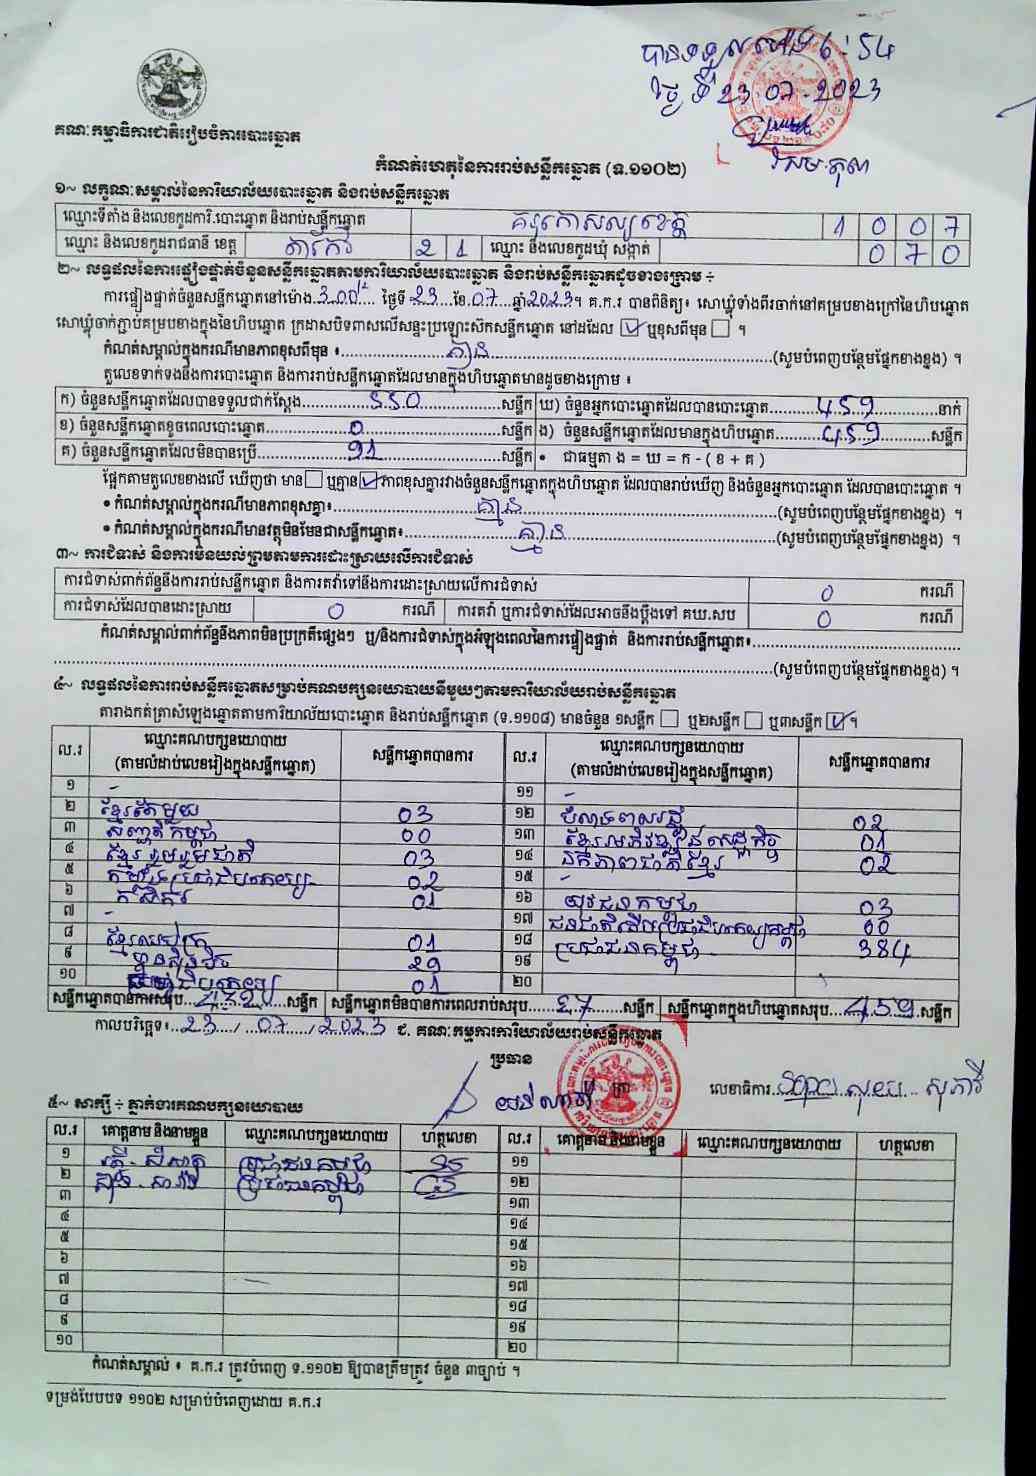 បានទទួលម៉ោង 6:54
ថ្ងៃទី 23.07.2023
គណៈកម្មាធិការជាតិរៀបចំការបោះឆ្នោត
កំណត់ហេតុនៃការរាប់សន្លឹកឆ្នោត (ទ.១១០២)
១~ លក្ខណៈសម្គាល់នៃការិយាល័យបោះឆ្នោត និងរាប់សន្លឹកឆ្នោត
ឈ្មោះទីតាំង និងលេខកូដការិ.បោះឆ្នោត និងរាប់សន្លឹកឆ្នោត 1 0 0 7
ឈ្មោះ និងលេខកូដរាជធានី ខេត្ត តាកែវ 2 1 ឈ្មោះ និងលេខកូដឃុំ សង្កាត់ 0 7 0
២~ លទ្ធផលនៃការផ្ទៀងផ្ទាត់ចំនួនសន្លឹកឆ្នោតតាមការិយាល័យបោះឆ្នោត និងរាប់សន្លឹកឆ្នោតដូចខាងក្រោម ÷
ការផ្ទៀងផ្ទាត់ចំនួនសន្លឹកឆ្នោតនៅម៉ោង 3:00 ថ្ងៃទី 23 ខែ 07 ឆ្នាំ 2023។ គ.ក.រ បានពិនិត្យ៖ សោឃ្លុំទាំងពីរចាក់នៅគម្របខាងក្រៅនៃហិបឆ្នោត
សោឃ្លុំចាក់ភ្ជាប់គម្របខាងក្នុងនៃហិបឆ្នោត ក្រដាសបិទពាសលើសន្ទះប្រឡោះស៊កសន្លឹកឆ្នោត នៅដដែល ☑ ឬខុសពីមុន ☐ ។
កំណត់សម្គាល់ក្នុងករណីមានភាពខុសពីមុន ៖ គ្មាន (សូមបំពេញបន្ថែមផ្នែកខាងខ្នង) ។
តួលេខទាក់ទងនឹងការបោះឆ្នោត និងការរាប់សន្លឹកឆ្នោតដែលមានក្នុងហិបឆ្នោតមានដូចខាងក្រោម ៖
ក) ចំនួនសន្លឹកឆ្នោតដែលបានទទួលជាក់ស្តែង 550 សន្លឹក ឃ) ចំនួនអ្នកបោះឆ្នោតដែលបានបោះឆ្នោត 459 នាក់
ខ) ចំនួនសន្លឹកឆ្នោតខូចពេលបោះឆ្នោត 0 សន្លឹក ង) ចំនួនសន្លឹកឆ្នោតដែលមានក្នុងហិបឆ្នោត 459 សន្លឹក
គ) ចំនួនសន្លឹកឆ្នោតដែលមិនបានប្រើ 91 សន្លឹក • ជាធម្មតា ង = ឃ = ក - ( ខ + គ )
ផ្អែកតាមតួលេខខាងលើ ឃើញថា មាន ☐ ឬគ្មាន ☑ ភាពខុសគ្នារវាងចំនួនសន្លឹកឆ្នោតក្នុងហិបឆ្នោត ដែលបានរាប់ឃើញ និងចំនួនអ្នកបោះឆ្នោត ដែលបានបោះឆ្នោត ។
• កំណត់សម្គាល់ក្នុងករណីមានភាពខុសគ្នា៖ គ្មាន (សូមបំពេញបន្ថែមផ្នែកខាងខ្នង) ។
• កំណត់សម្គាល់ក្នុងករណីមានវត្ថុមិនមែនជាសន្លឹកឆ្នោត៖ គ្មាន (សូមបំពេញបន្ថែមផ្នែកខាងខ្នង) ។
៣~ ការជំទាស់ និងការមិនយល់ព្រមតាមការដោះស្រាយលើការជំទាស់
ការជំទាស់ពាក់ព័ន្ធនឹងការរាប់សន្លឹកឆ្នោត និងការតវ៉ាទៅនឹងការដោះស្រាយលើការជំទាស់ 0 ករណី
ការជំទាស់ដែលបានដោះស្រាយ 0 ករណី ការតវ៉ា ឬការជំទាស់ដែលអាចនឹងប្តឹងទៅ គឃ.សប 0 ករណី
កំណត់សម្គាល់ពាក់ព័ន្ធនឹងភាពមិនប្រក្រតីផ្សេងៗ ឬ/និងការជំទាស់ក្នុងអំឡុងពេលនៃការផ្ទៀងផ្ទាត់ និងការរាប់សន្លឹកឆ្នោត៖
(សូមបំពេញបន្ថែមផ្នែកខាងខ្នង) ។
៤~ លទ្ធផលនៃការរាប់សន្លឹកឆ្នោតសម្រាប់គណបក្សនយោបាយនីមួយៗតាមការិយាល័យរាប់សន្លឹកឆ្នោត
តារាងកត់ត្រាសំឡេងឆ្នោតតាមការិយាល័យបោះឆ្នោត និងរាប់សន្លឹកឆ្នោត (ទ.១១០៨) មានចំនួន ១សន្លឹក ☐ ឬ២សន្លឹក ☐ ឬ៣សន្លឹក ☑ ។
ល.រ ឈ្មោះគណបក្សនយោបាយ (តាមលំដាប់លេខរៀងក្នុងសន្លឹកឆ្នោត) សន្លឹកឆ្នោតបានការ ល.រ ឈ្មោះគណបក្សនយោបាយ (តាមលំដាប់លេខរៀងក្នុងសន្លឹកឆ្នោត) សន្លឹកឆ្នោតបានការ
១ - ១១ -
២ ខ្មែរតែមួយ 03 ១២ 02
៣ សញ្ជាតិកម្ពុជា 00 ១៣ ខ្មែរអភិវឌ្ឍន៍សេដ្ឋកិច្ច 01
៤ ខ្មែររួបរួមជាតិ 03 ១៤ ឯកភាពជាតិខ្មែរ 02
៥ 02 ១៥ -
៦ កសិករ 01 ១៦ យុវជនកម្ពុជា 03
៧ - ១៧ ជនជាតិដើមប្រជាធិបតេយ្យកម្ពុជា 00
៨ 01 ១៨ ប្រជាជនកម្ពុជា 384
៩ ហ្វ៊ុនស៊ិនប៉ិច 29 ១៩
១០ 01 ២០
សន្លឹកឆ្នោតបានការសរុប 432 សន្លឹក សន្លឹកឆ្នោតមិនបានការពេលរាប់សរុប 27 សន្លឹក សន្លឹកឆ្នោតក្នុងហិបឆ្នោតសរុប 459 សន្លឹក
កាលបរិច្ឆេទ៖ 23 / 07 / 2023 ជ. គណៈកម្មការការិយាល័យរាប់សន្លឹកឆ្នោត
ប្រធាន
លេខាធិការ
៥~ សាក្សី ÷ ភ្នាក់ងារគណបក្សនយោបាយ
ល.រ គោត្តនាម និងនាមខ្លួន ឈ្មោះគណបក្សនយោបាយ ហត្ថលេខា ល.រ គោត្តនាម និងនាមខ្លួន ឈ្មោះគណបក្សនយោបាយ ហត្ថលេខា
១ ប្រជាជនកម្ពុជា ១១
២ ប្រជាជនកម្ពុជា ១២
៣ ១៣
៤ ១៤
៥ ១៥
៦ ១៦
៧ ១៧
៨ ១៨
៩ ១៩
១០ ២០
កំណត់សម្គាល់ ៖ គ.ក.រ ត្រូវបំពេញ ទ.១១០២ ឱ្យបានត្រឹមត្រូវ ចំនួន ៣ច្បាប់ ។
ទម្រង់បែបបទ ១១០២ សម្រាប់បំពេញដោយ គ.ក.រ